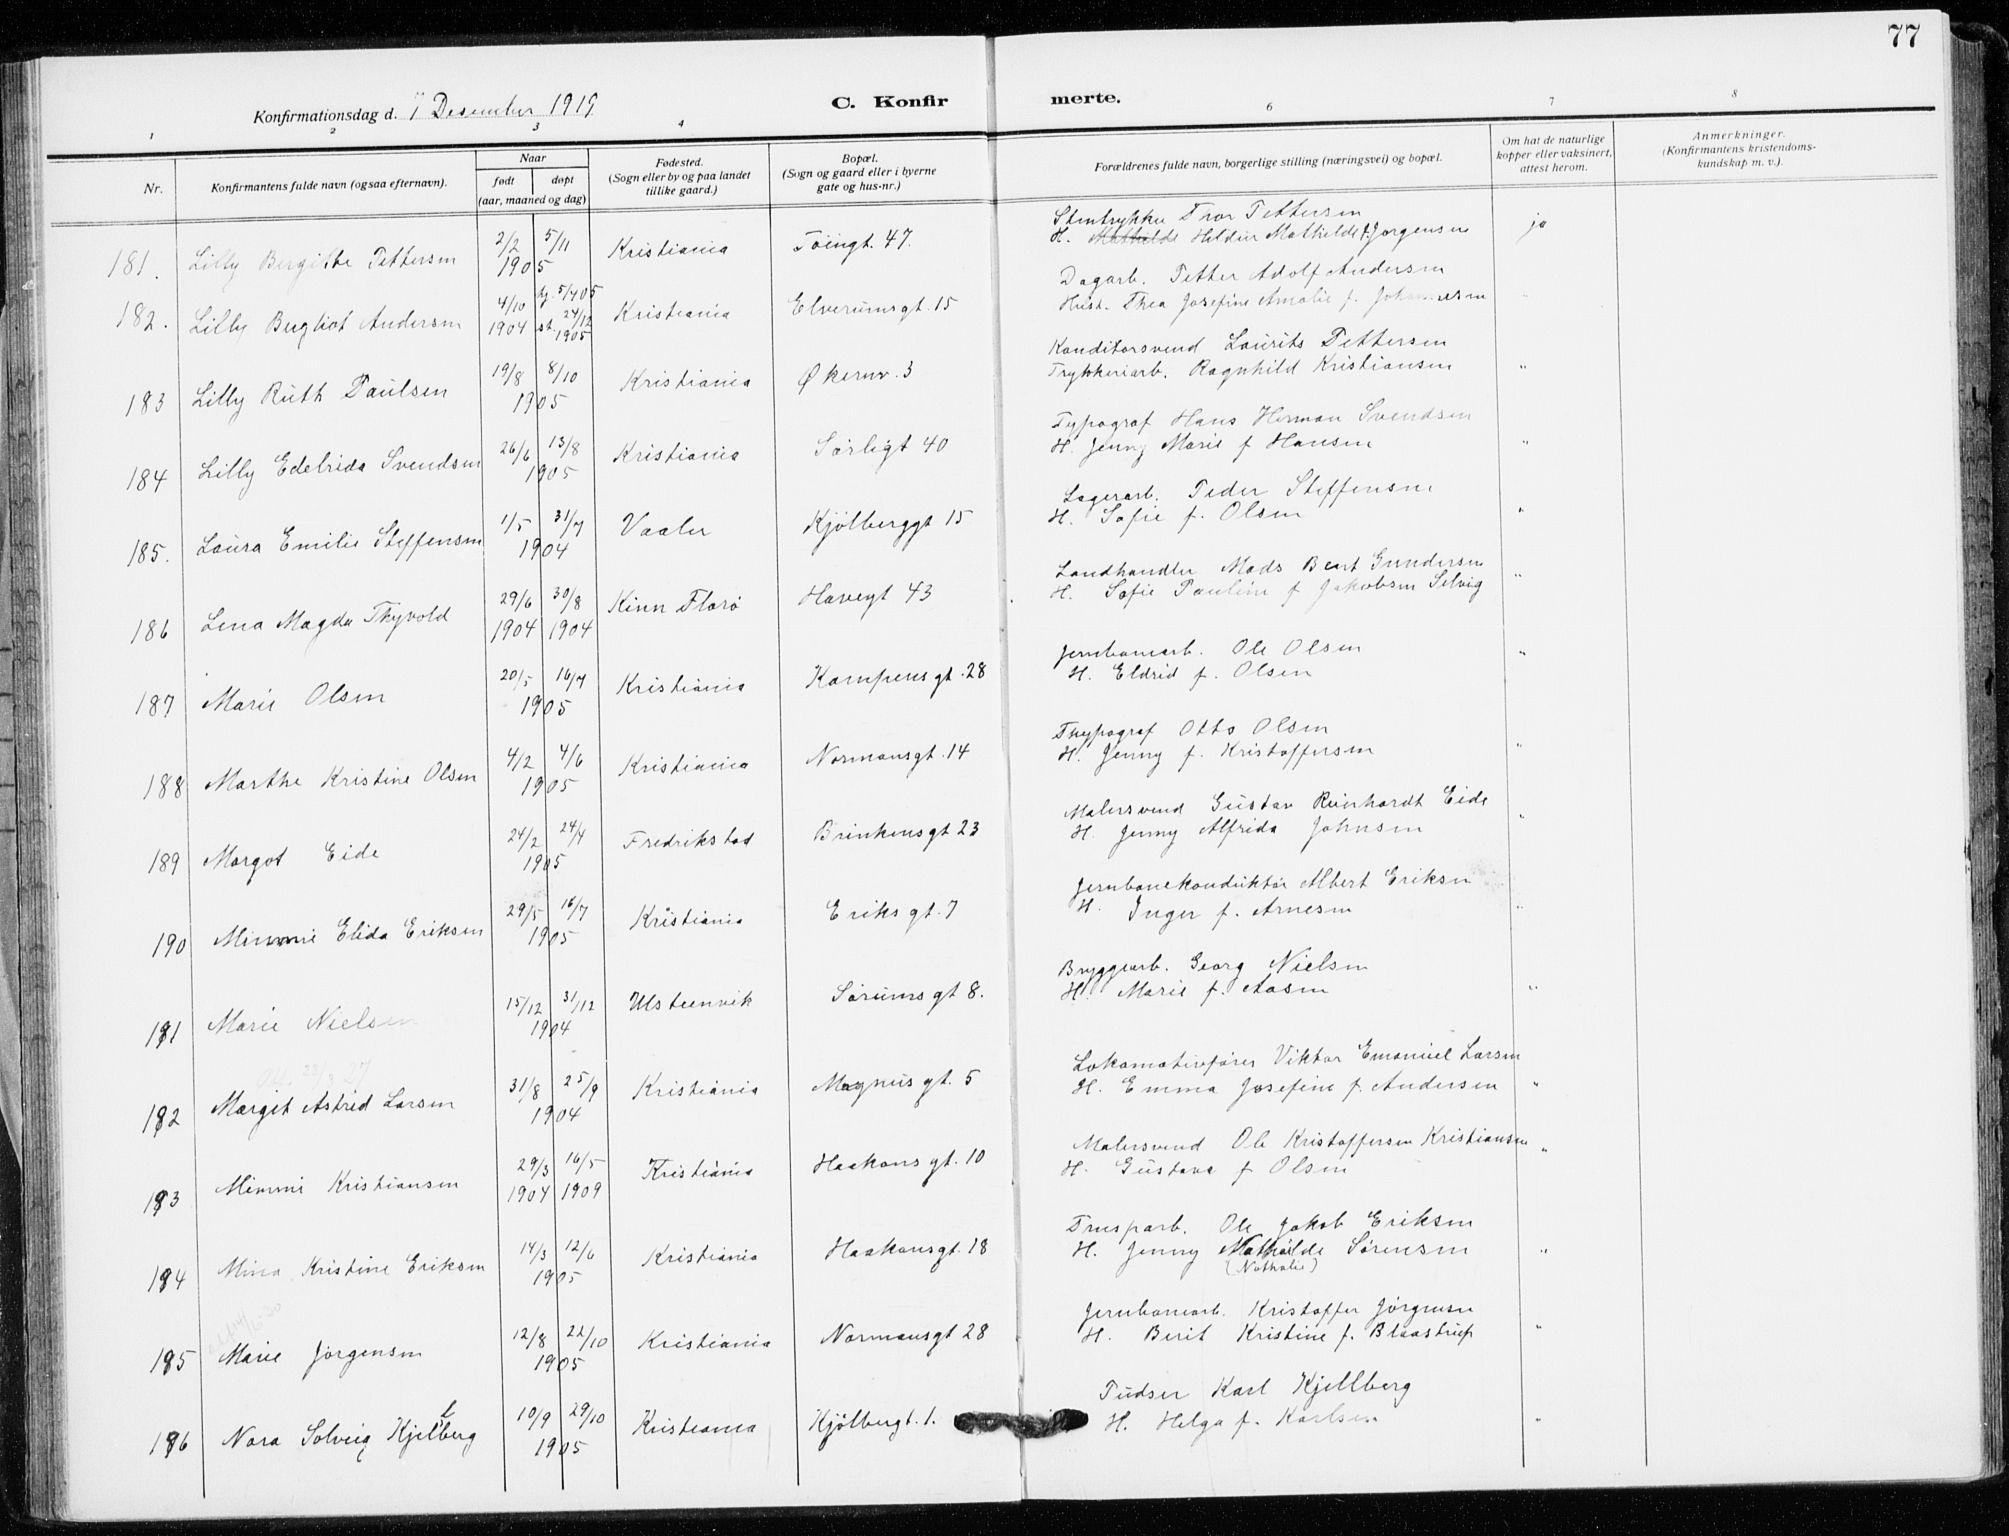 77
Konfirmationsdag d. 7 Desember 1919
C. Konfir merte.
1 2 3 4 6 7 8
Nr.
Konfirmantens fulde navn (ogsaa efternavn).
Naar
født døpt
(aar, maaned og dag)
Fødested.
(Sogn eller by og paa landet
tillike gaard.)
Bopæl.
(Sogn og gaard eller i byerne
gate og hus-nr.)
Forældrenes fulde navn, borgerlige stilling (næringsvei) og bopæl.
Om hat de naturlige
kopper eller vaksinert,
attest herom.
Anmerkninger.
(Konfirmantens kristendoms-
kundskap m. v.).
Stentrykker Tror Pettersen
181. Lilly Bergithe Pettersen 2/2 5/11 1905 Kristiania Töiengt. 47. H. Mathilde Heldur Mathilde f. Jorgensen ja
Dagarb. Petter Adolf Andersen
182. Lilly Bergliot Andersen 4/10 1904 hj. 5/4 05 st. 24/12 1905 Kristiania Elverumsgt. 15 Hust. Thea Josefine Amalie f. Johannesen "
Konditorsvend Laurits Pettersen
183 Lilly Ruth Paulsen 19/8 8/10 1905 Kristiania Økernv. 3 Trykkeriarb. Ragnhild Kristiansen "
Typograf Hans Herman Svendsen
184 Lilly Edelrida Svendsen 26/6 13/8 1905 Kristiania Sørligt 40 H. Jenny Marie f Hansen "
Lagerarb. Peder Steffensen
185. Laura Emilie Steffensen 1/5 31/7 1904 Vaaler Kjölberggt 15 H. Sofie f. Olsen "
Landhandler Mads Bent Gundersen
186 Lena Magda Thyvold 29/6 1904 30/8 1904 Kinn Florø Havegt 43 H. Sofie Pauline f Jakobsen Selvig "
Jernbanearb. Ole Olsen
187 Marie Olsen 20/5 16/7 1905 Kristiania Kampensgt. 28 H. Eldrid f. Olsen "
Thypograf Otto Olsen
188 Marthe Kristine Olsen 4/2 4/6 1905 Kristiania Normansgt. 14 H. Jenny f. Kristoffersen "
Malersvend Gustav Reinhardt Eide
189 Margot Eide 24/2 24/4 1905 Fredrikstad Brinkensgt 23 H. Jenny Alfrida Johnsen "
Jernbanekonduktör Albert Eriksen
190 Mimmie Elida Eriksen 29/5 16/7 1905 Kristiania Eriksgt. 7 H. Inger f. Arnesen "
Bryggearb. Georg Nielsen
191 Marie Nielsen 15/12 31/12 1904 Ulsteenvik Sørumsgt 8. H. Marie f. Aasen "
Lokomotivfører Viktor Emanuel Larsen
192 Margit Astrid Larsen 31/8 25/9 1904 Kristiania Magnusgt. 5 H. Emma Josefine f. Andersen "
Malersvend Ole Kristoffersen Kristiansen
193 Mimmi Kristiansen 29/3 1904 16/5 1909 Kristiania Haakonsgt. 10 H. Gustava f Olsen "
Ole Jakob Eriksen
194 Mina Kristine Eriksen 14/3 12/6 1905 Kristiania Haakonsgt. 18 H. Jenny Mathilde Sørensen "
(Nathalie)
Jernbanearb. Kristoffer Jörgensen
195 Marie Jørgensen 12/8 22/10 1905 Kristiania Normansgt 28 H. Berit Kristine f. Blaastrup "
Pudser Karl Kjellberg
196 Nora Solveig Kjellberg 10/9 29/10 1905 Kristiania Kjølbergt. 1. H. Helga f. Karlsen "